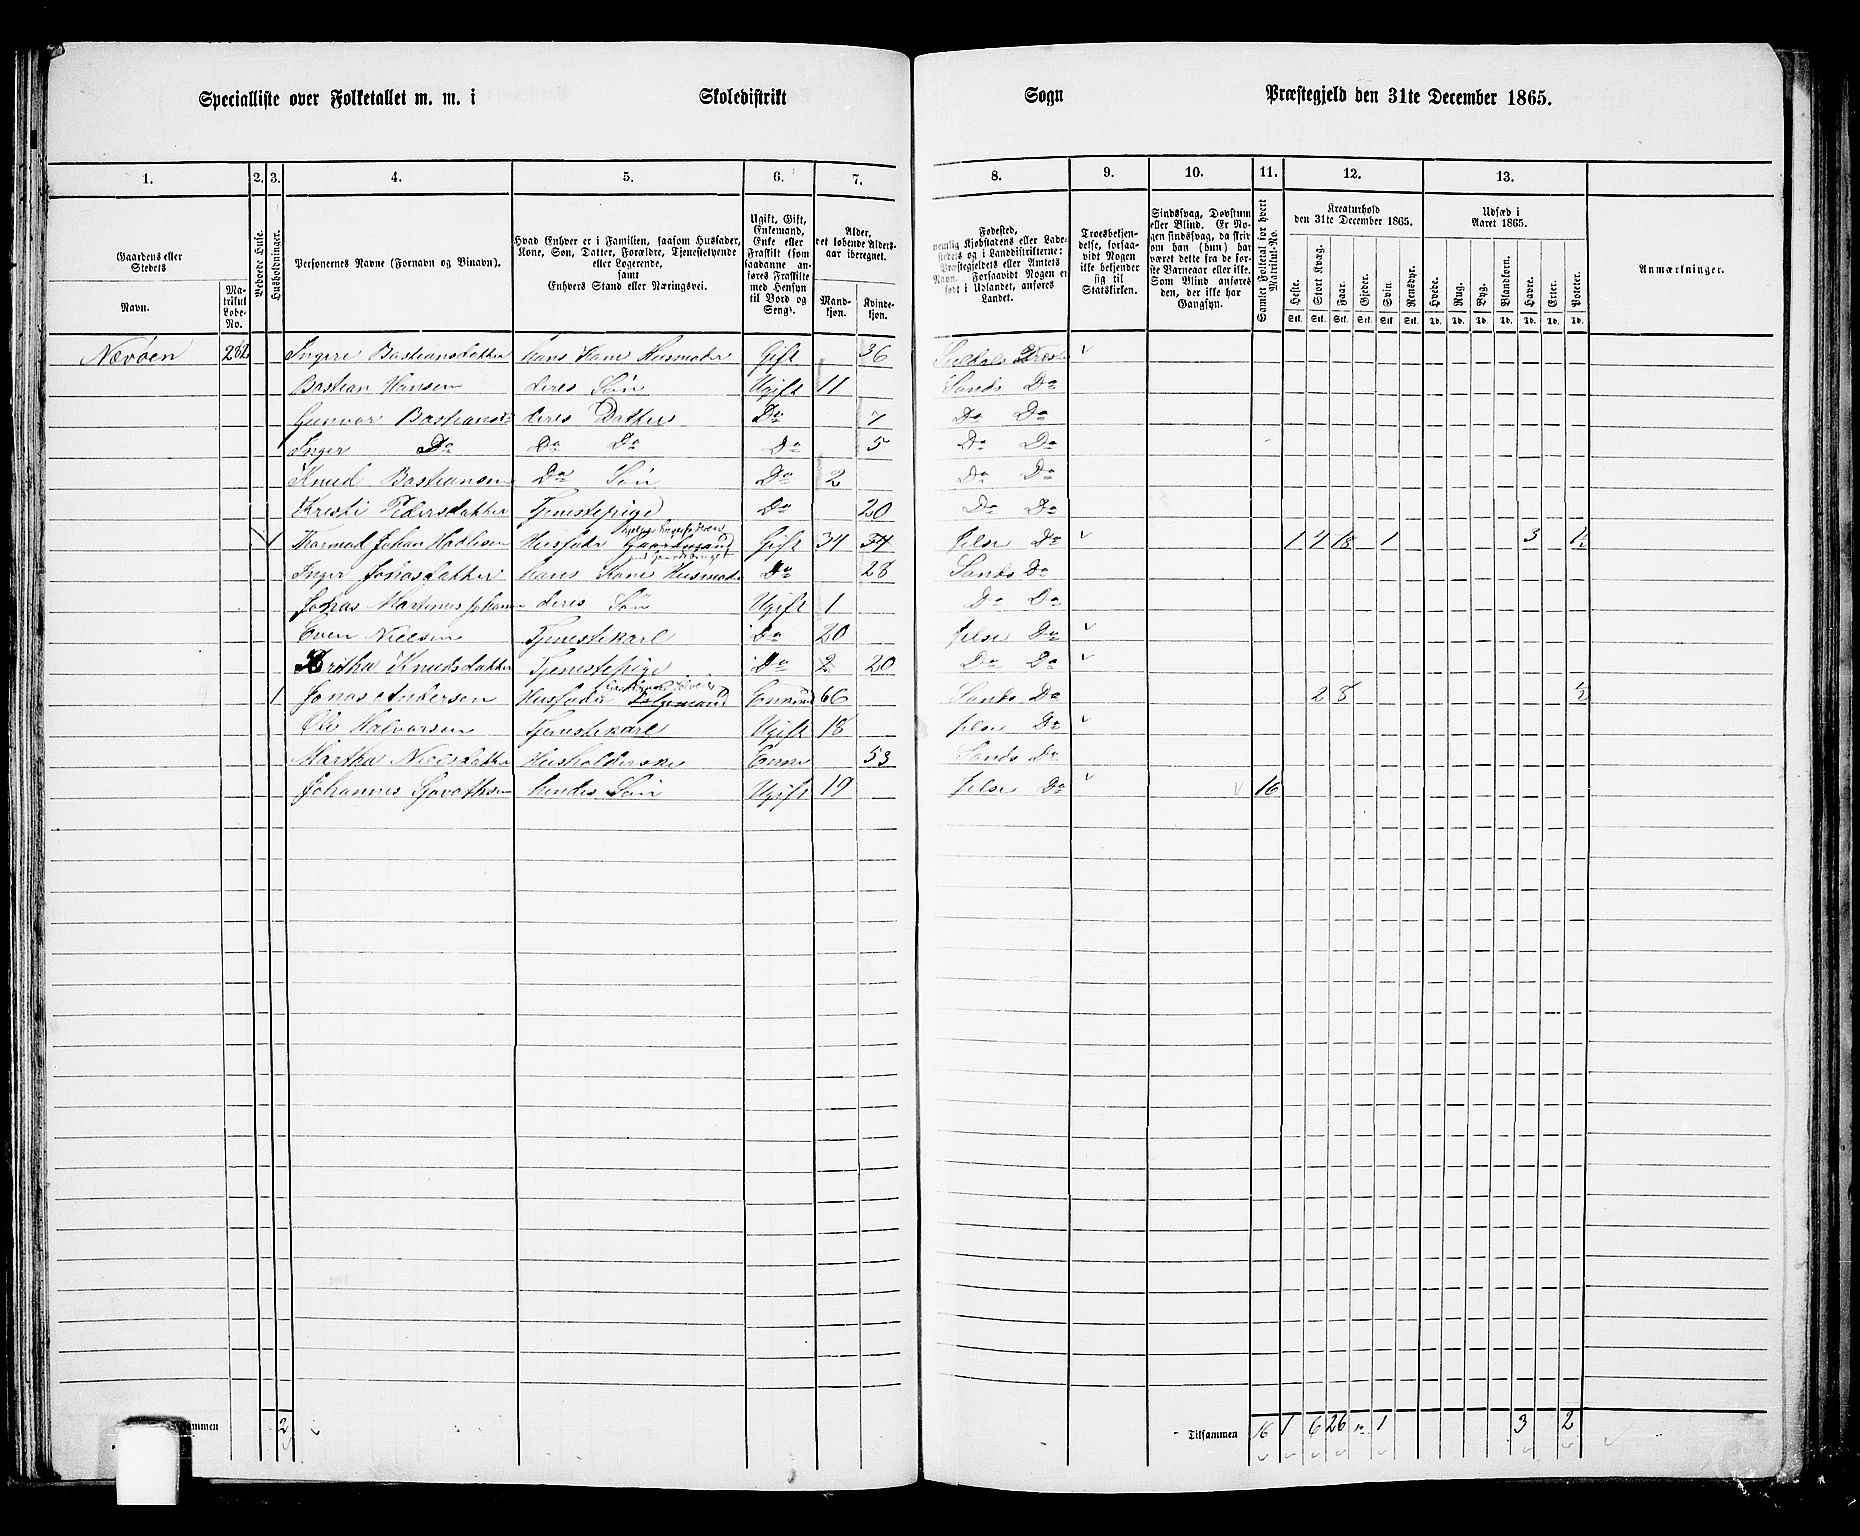 Specialliste over Folketallet m. m. i Skoledistrikt Sogn Præstegjeld den 31te December 1865.
1. 2. 3. 4. 5. 6. 7. 8. 9. 10. 11. 12. 13.
Gaardens eller Stedets
Navn.
Matrikul Løbe-No.
Beboede Huse.
Husholdninger.
Personernes Navne (Fornavn og Binavn).
Hvad Enhver er i Familien, saasom Husfader, Kone, Søn, Datter, Forældre, Tjenestetyende eller Logerende, samt Enhvers Stand eller Næringsvei.
Ugift, Gift, Enkemand, Enke eller Fraskilt (som saadanne anføres Fraskilte med Hensyn til Bord og Seng).
Alder, det løbende Alders-aar iberegnet.
Mand-kjøn.
Kvinde-kjøn.
Fødested, nemlig Kjøbstadens eller Lade-stedets og i Landdistrikterne: Præstegjeldets eller Amtets Navn. Forsaavidt Nogen er født i Udlandet, anføres Landet.
Troesbekjen-delse, forsaa-vidt Nogen ikke bekjender sig til Statskirken.
Sindssvag, Døvstum eller Blind. Er No-gen sindssvag, da skriv om han (hun) har været dette fra de før-ste Barneaar eller ikke. Som Blind anføres den, der ikke har Gangsyn.
Samlet Folketal for hvert Matrikul-No.
Kreaturhold den 31te December 1865.
Udsæd i Aaret 1865.
Heste. Stort Kvæg. Faar. Gjeder. Svin. Rensdyr. Hvede. Rug. Byg. Blandkorn. Havre. Erter. Poteter.
Stk. Stk. Stk. Stk. Stk. Stk. Td. Td. Td. Td. Td. Td. Td.
Anmærkninger.
Nævøen 282 Ingeri Bastiansdatter hans Kone Husmoder Gift 36
Bastian Hansen deres Søn Ugift 11 Sands Do
Gunvor deres Datter Do 7 Do Do
Inger Do Do Do Do 5 Do Do
Knud Bastiansen Do Søn Do 2 Do Do
Kresti Pedersdatter Tjenestepige Do 20 Do Do
Johan Husfader Gaardmand Gift 34 34 Jelse Do 1 4 18 1 3 1½
Inger Jonasdatter hans Kone Husmoder Do 28 Sands Do
Jonas Martinus deres Søn Ugift 1 Do Do
Even Nielsen Tjenestekarl Do 20 Jelse Do
Britha Knudsdatter Tjenestepige Do 2 20 Do Do
1 Jonas Andersen Husfader 66 Sands Do 2 8 ½
Ole Halvorsen Tjenestekarl Ugift 18 Jelse Do
Martha Nielsdatter Husholderske Enke 53 Sands Do
Johannes hendes Søn Ugift 19 Jelse Do 16
2 Tilsammen 16 1 6 26 " 1 3 2